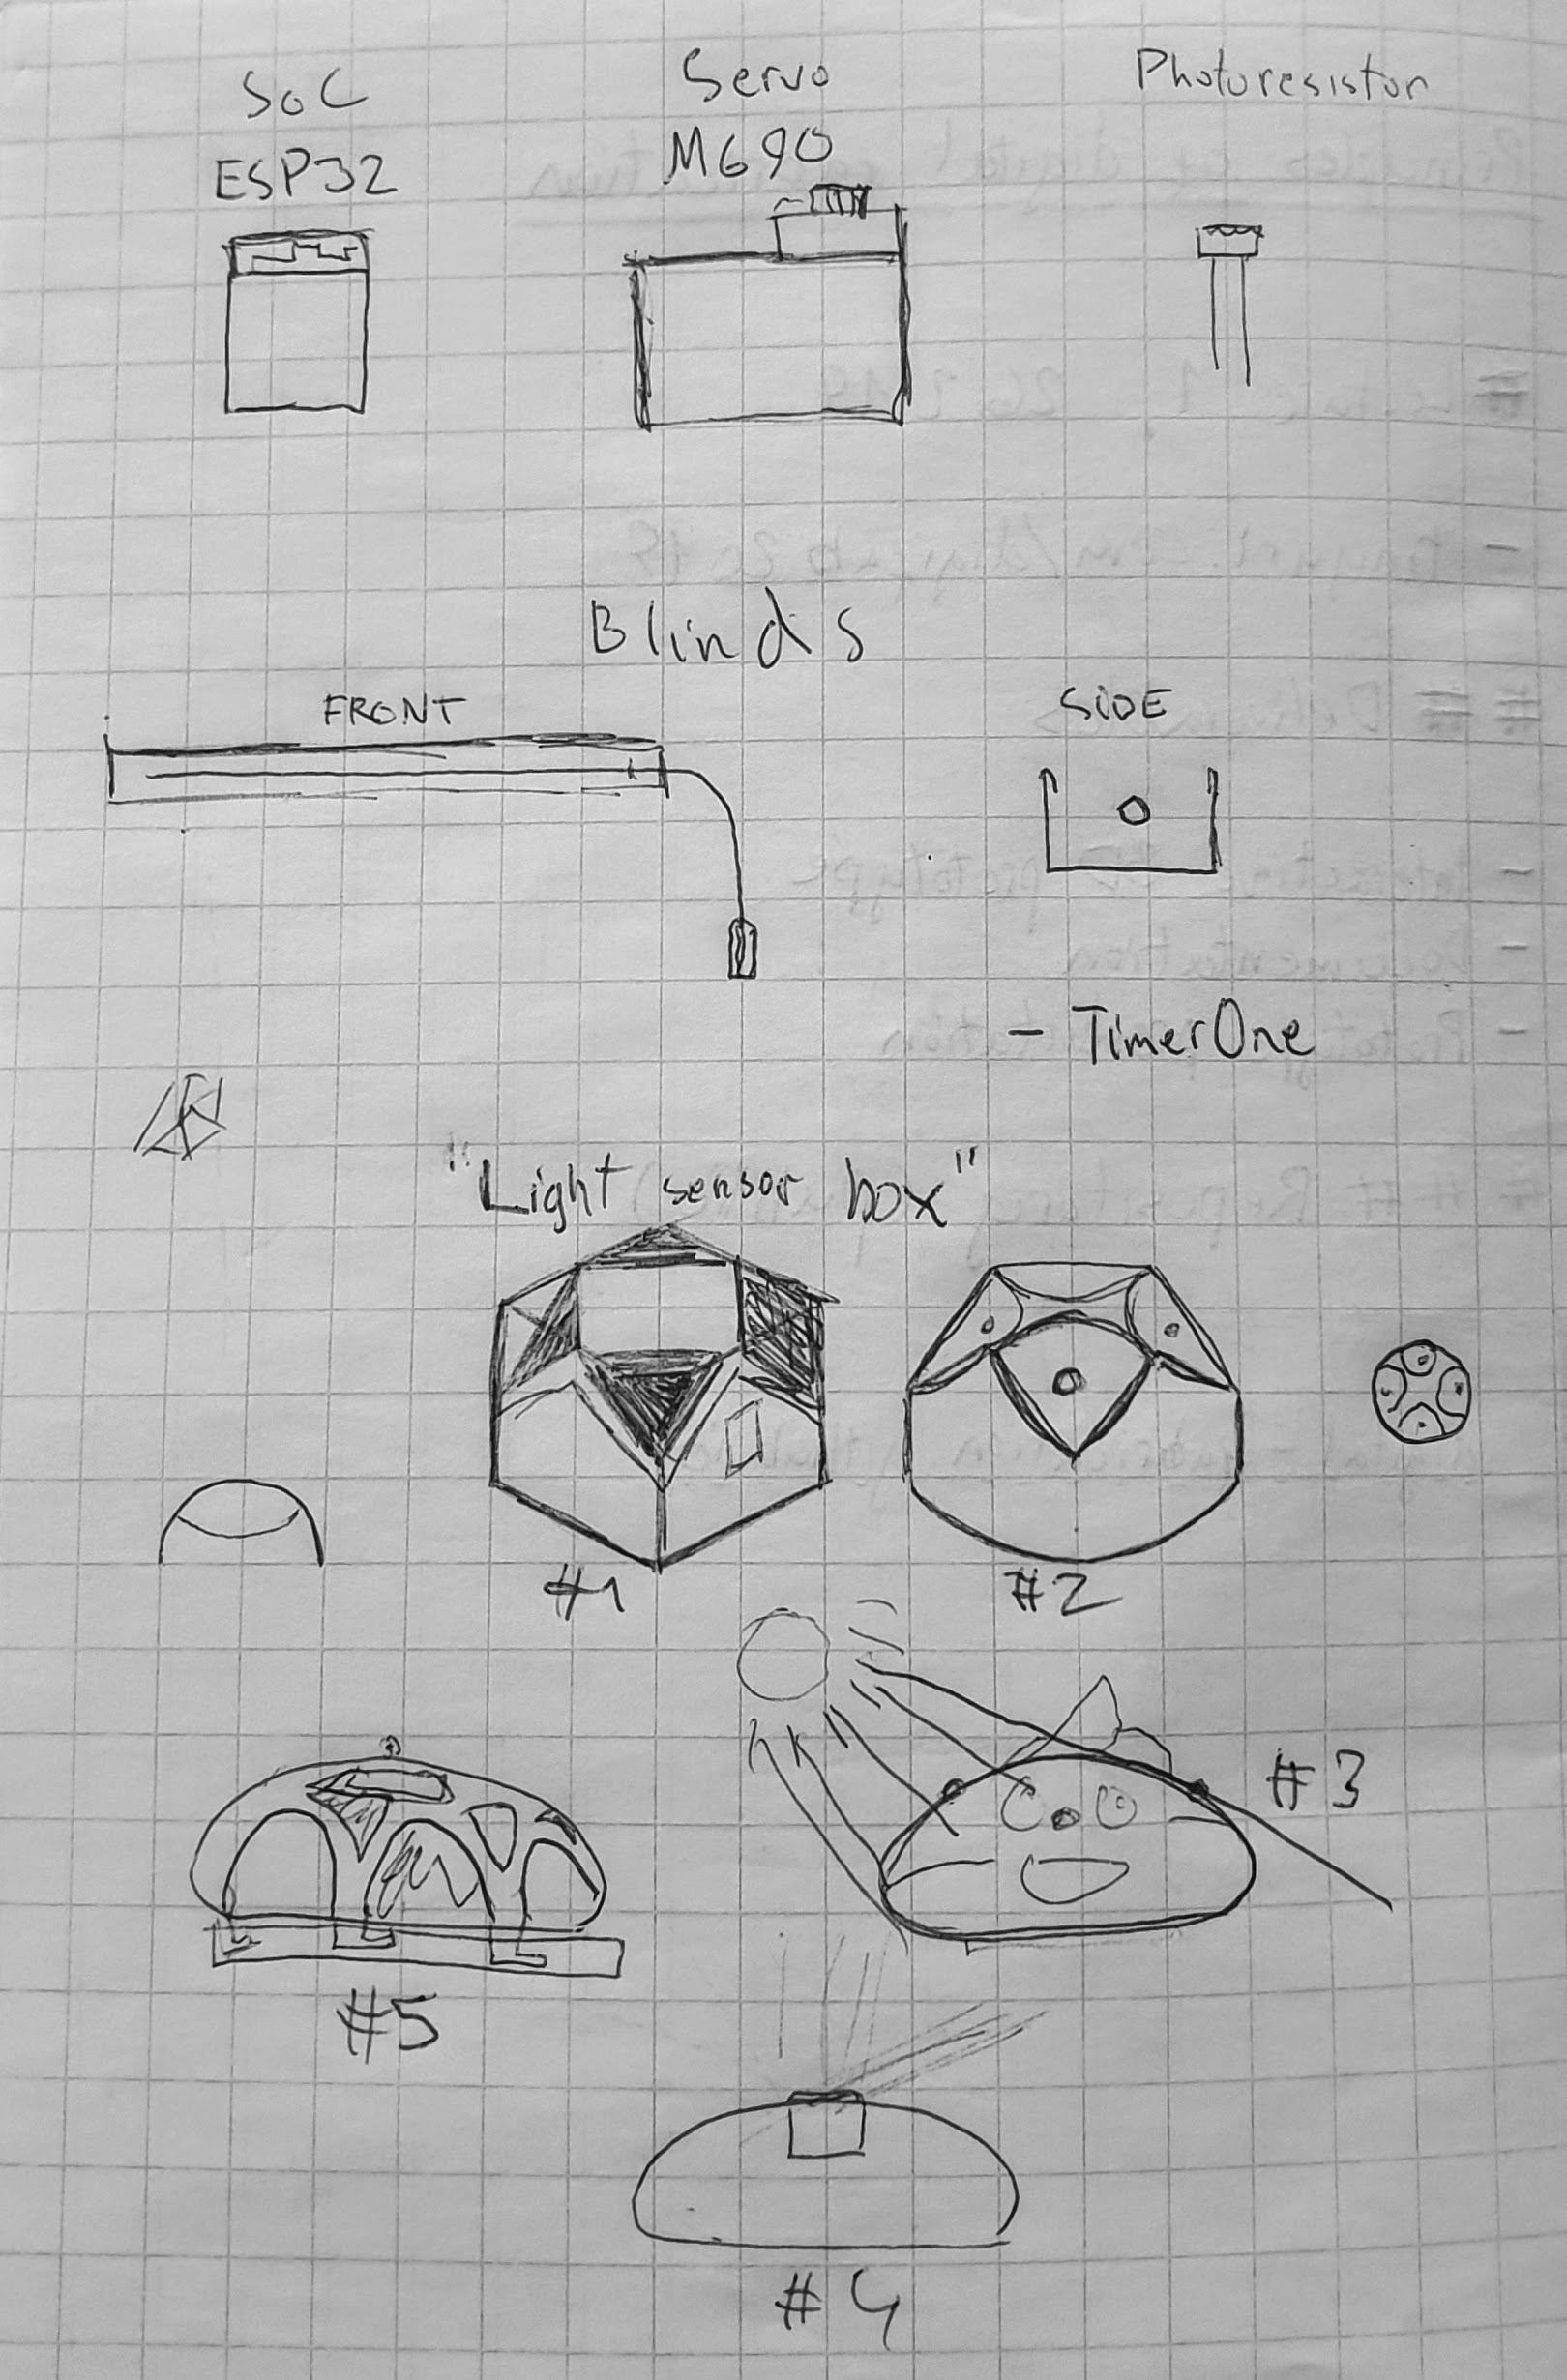 SoC
ESP32
Servo
MG90
Photoresistor
Blinds
FRONT
SIDE
- TimerOne
"Light sensor box"
#1
#2
#3
#5
#4